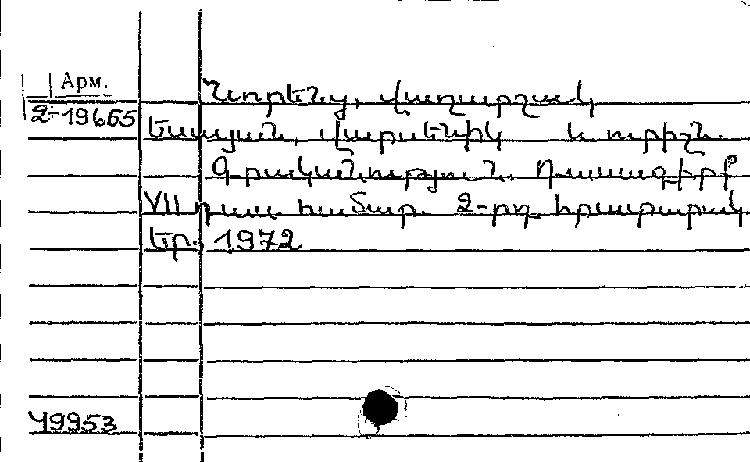 Арм.
2-19665
Նորենց, Վաղարշակ,
Եսայան, Վարսենիկ և ուրիշն.
Գրականություն. Դասագիրք
VII դաս. համար. 2-րդ հրատարակ.
Եր. 1972
49953